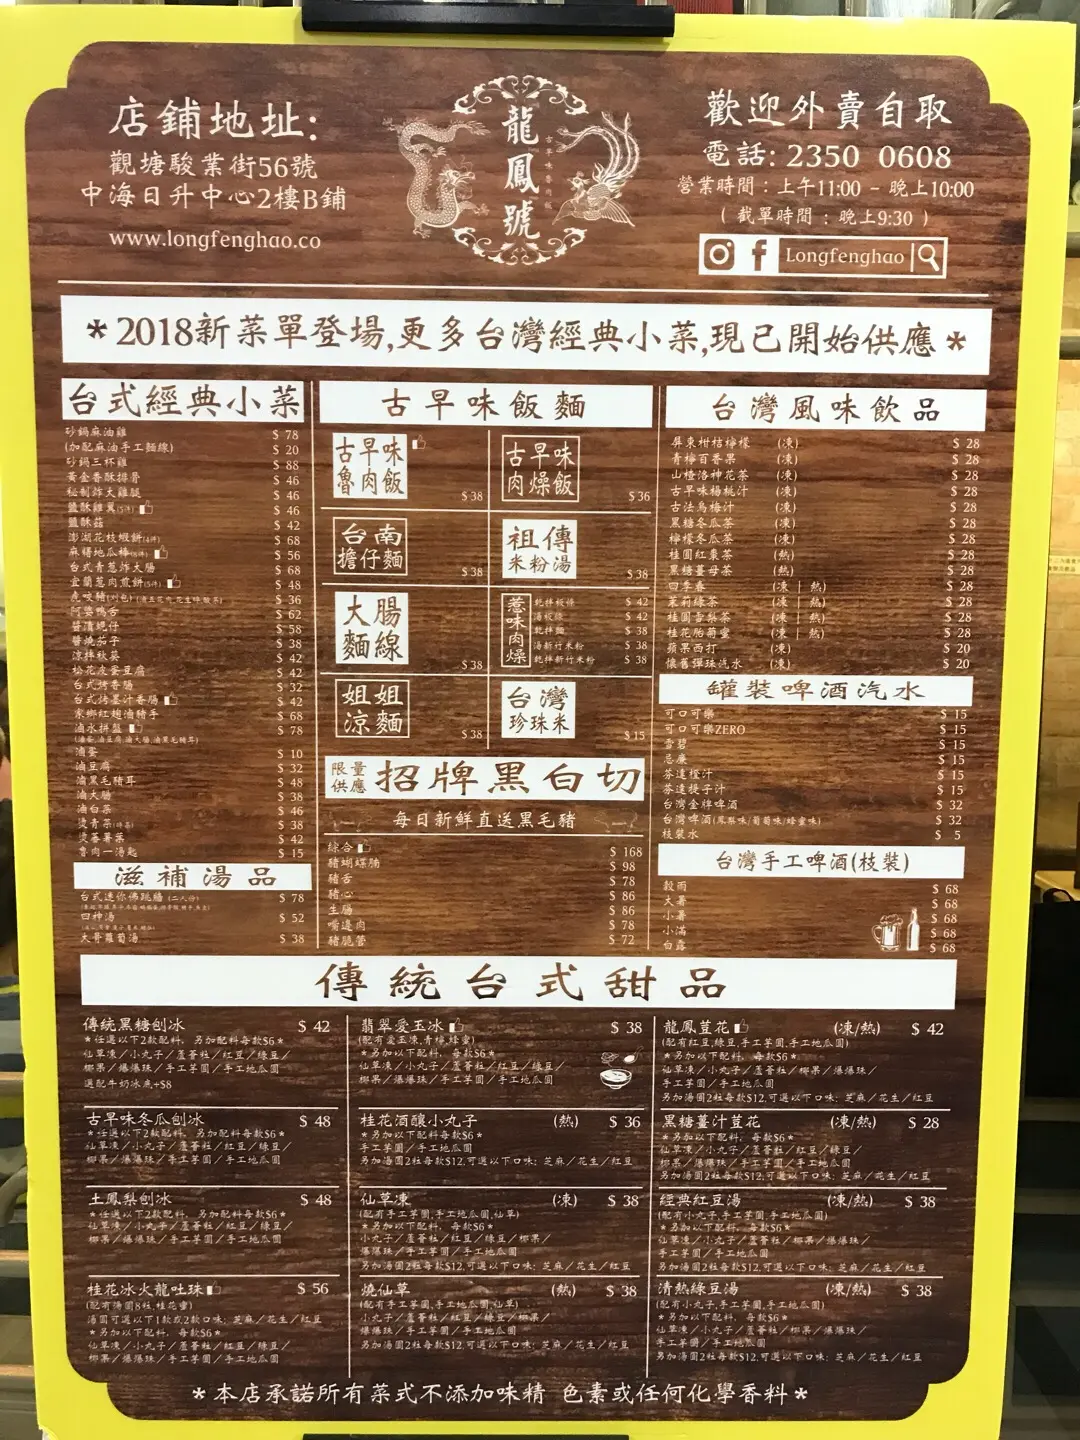 店鋪地址:
觀塘駿業街56號
中海日升中心2樓B鋪
www.longfenghao.co
龍鳳號
古早味魯肉飯
歡迎外賣自取
電話: 2350 0608
營業時間：上午11:00 - 晚上10:00
( 截單時間：晚上9:30 )
Longfenghao
*2018新菜單登場,更多台灣經典小菜,現已開始供應*
台式經典小菜
砂鍋麻油雞 $ 78
(加配麻油手工麵線) $ 20
砂鍋三杯雞 $ 88
黃金香酥排骨 $ 46
秘制炸大雞腿 $ 46
鹽酥雞翼(5件) $ 46
鹽酥菇 $ 42
澎湖花枝蝦餅(4件) $ 68
麻糬地瓜棒(6件) $ 56
台式青蔥炸大腸 $ 68
宜蘭蔥肉煎餅(5件) $ 48
虎咬豬(刈包) $ 36
阿婆鴨舌 $ 62
醬漬蜆仔 $ 58
醬燒茄子 $ 38
涼拌秋葵 $ 42
松花皮蛋豆腐 $ 42
台式烤香腸 $ 32
台式烤墨汁香腸 $ 42
家鄉紅趐滷豬手 $ 68
滷水拼盤 $ 78
(滷蛋,滷豆腐,滷大腸,滷黑毛豬耳)
滷蛋 $ 10
滷豆腐 $ 32
滷黑毛豬耳 $ 48
滷大腸 $ 38
滷白菜 $ 46
燙青菜 $ 38
燙蕃薯葉 $ 42
魯肉一湯匙 $ 15
滋補湯品
台式迷你佛跳牆 (二人份) $ 78
四神湯 $ 52
大骨蘿蔔湯 $ 38
古早味飯麵
古早味魯肉飯 $ 38
古早味肉燥飯 $ 36
台南擔仔麵 $ 38
祖傳米粉湯 $ 38
大腸麵線 $ 38
惹味肉燥
乾拌板條 $ 42
湯板條 $ 42
乾拌麵 $ 38
湯新竹米粉 $ 38
乾拌新竹米粉 $ 38
姐姐涼麵 $ 38
台灣珍珠米 $ 15
限量供應 招牌黑白切
每日新鮮直送黑毛豬
綜合 $ 168
豬蝴蝶腩 $ 98
豬舌 $ 78
豬心 $ 86
生腸 $ 86
嘴邊肉 $ 78
豬脆管 $ 72
台灣風味飲品
屏東柑桔檸檬 (凍) $ 28
青檸百香果 (凍) $ 28
山楂洛神花茶 (凍) $ 28
古早味楊桃汁 (凍) $ 28
古法烏梅汁 (凍) $ 28
黑糖冬瓜茶 (凍) $ 28
檸檬冬瓜茶 (凍) $ 28
桂圓紅棗茶 (熱) $ 28
黑糖薑母茶 (熱) $ 28
四季春 (凍｜熱) $ 28
茉莉綠茶 (凍｜熱) $ 28
桂圓雪梨茶 (凍｜熱) $ 28
桂花胎菊蜜 (凍｜熱) $ 28
蘋果西打 (凍) $ 20
懷舊彈珠汽水 (凍) $ 20
罐裝啤酒汽水
可口可樂 $ 15
可口可樂ZERO $ 15
雪碧 $ 15
忌廉 $ 15
芬達橙汁 $ 15
芬達提子汁 $ 15
台灣金牌啤酒 $ 32
台灣啤酒(鳳梨味/葡萄味/蜂蜜味) $ 32
枝裝水 $ 5
台灣手工啤酒(枝裝)
穀雨 $ 68
大暑 $ 68
小暑 $ 68
小滿 $ 68
白露 $ 68
傳統台式甜品
傳統黑糖刨冰 $ 42
*任選以下2款配料，另加配料每款$6*
仙草凍／小丸子／蘆薈粒／紅豆／綠豆／
椰果／爆爆珠／手工芋圓／手工地瓜圓
選配牛奶冰底+$8
古早味冬瓜刨冰 $ 48
*任選以下2款配料，另加配料每款$6*
仙草凍／小丸子／蘆薈粒／紅豆／綠豆／
椰果／爆爆珠／手工芋圓／手工地瓜圓
土鳳梨刨冰 $ 48
*任選以下2款配料，另加配料每款$6*
仙草凍／小丸子／蘆薈粒／紅豆／綠豆／
椰果／爆爆珠／手工芋圓／手工地瓜圓
桂花冰火龍吐珠 $ 56
(配有湯圓8粒,桂花蜜)
湯圓可選以下1款或2款口味: 芝麻／花生／紅豆
*另加以下配料，每款$6*
仙草凍／小丸子／蘆薈粒／紅豆／綠豆／
椰果／爆爆珠／手工芋圓／手工地瓜圓
翡翠愛玉冰 $ 38
(配有愛玉凍,青檸,蜂蜜)
*另加以下配料，每款$6*
仙草凍／小丸子／蘆薈粒／紅豆／綠豆／
椰果／爆爆珠／手工芋圓／手工地瓜圓
桂花酒釀小丸子 (熱) $ 36
*另加以下配料，每款$6*
手工芋圓／手工地瓜圓
另加湯圓2粒每款$12,可選以下口味: 芝麻／花生／紅豆
仙草凍 (凍) $ 38
(配有手工芋圓,手工地瓜圓,仙草)
*另加以下配料，每款$6*
小丸子／蘆薈粒／紅豆／綠豆／椰果／
爆爆珠／手工芋圓／手工地瓜圓
另加湯圓2粒每款$12,可選以下口味: 芝麻／花生／紅豆
燒仙草 (熱) $ 38
(配有手工芋圓,手工地瓜圓,仙草)
小丸子／蘆薈粒／紅豆／綠豆／椰果／
爆爆珠／手工芋圓／手工地瓜圓
另加湯圓2粒每款$12,可選以下口味: 芝麻／花生／紅豆
龍鳳荳花 (凍/熱) $ 42
(配有紅豆,綠豆,手工芋圓,手工地瓜圓)
*另加以下配料，每款$6*
仙草凍／小丸子／蘆薈粒／椰果／爆爆珠／
手工芋圓／手工地瓜圓
另加湯圓2粒每款$12,可選以下口味: 芝麻／花生／紅豆
黑糖薑汁荳花 (凍/熱) $ 28
*另加以下配料，每款$6*
仙草凍／小丸子／蘆薈粒／紅豆／綠豆／
椰果／爆爆珠／手工芋圓／手工地瓜圓
另加湯圓2粒每款$12,可選以下口味: 芝麻／花生／紅豆
經典紅豆湯 (凍/熱) $ 38
(配有小丸子,手工芋圓,手工地瓜圓)
*另加以下配料，每款$6*
仙草凍／小丸子／蘆薈粒／椰果／爆爆珠／
手工芋圓／手工地瓜圓
另加湯圓2粒每款$12,可選以下口味: 芝麻／花生／紅豆
清熱綠豆湯 (凍/熱) $ 38
(配有小丸子,手工芋圓,手工地瓜圓)
*另加以下配料，每款$6*
仙草凍／小丸子／蘆薈粒／椰果／爆爆珠／
手工芋圓／手工地瓜圓
另加湯圓2粒每款$12,可選以下口味: 芝麻／花生／紅豆
*本店承諾所有菜式不添加味精 色素或任何化學香料*